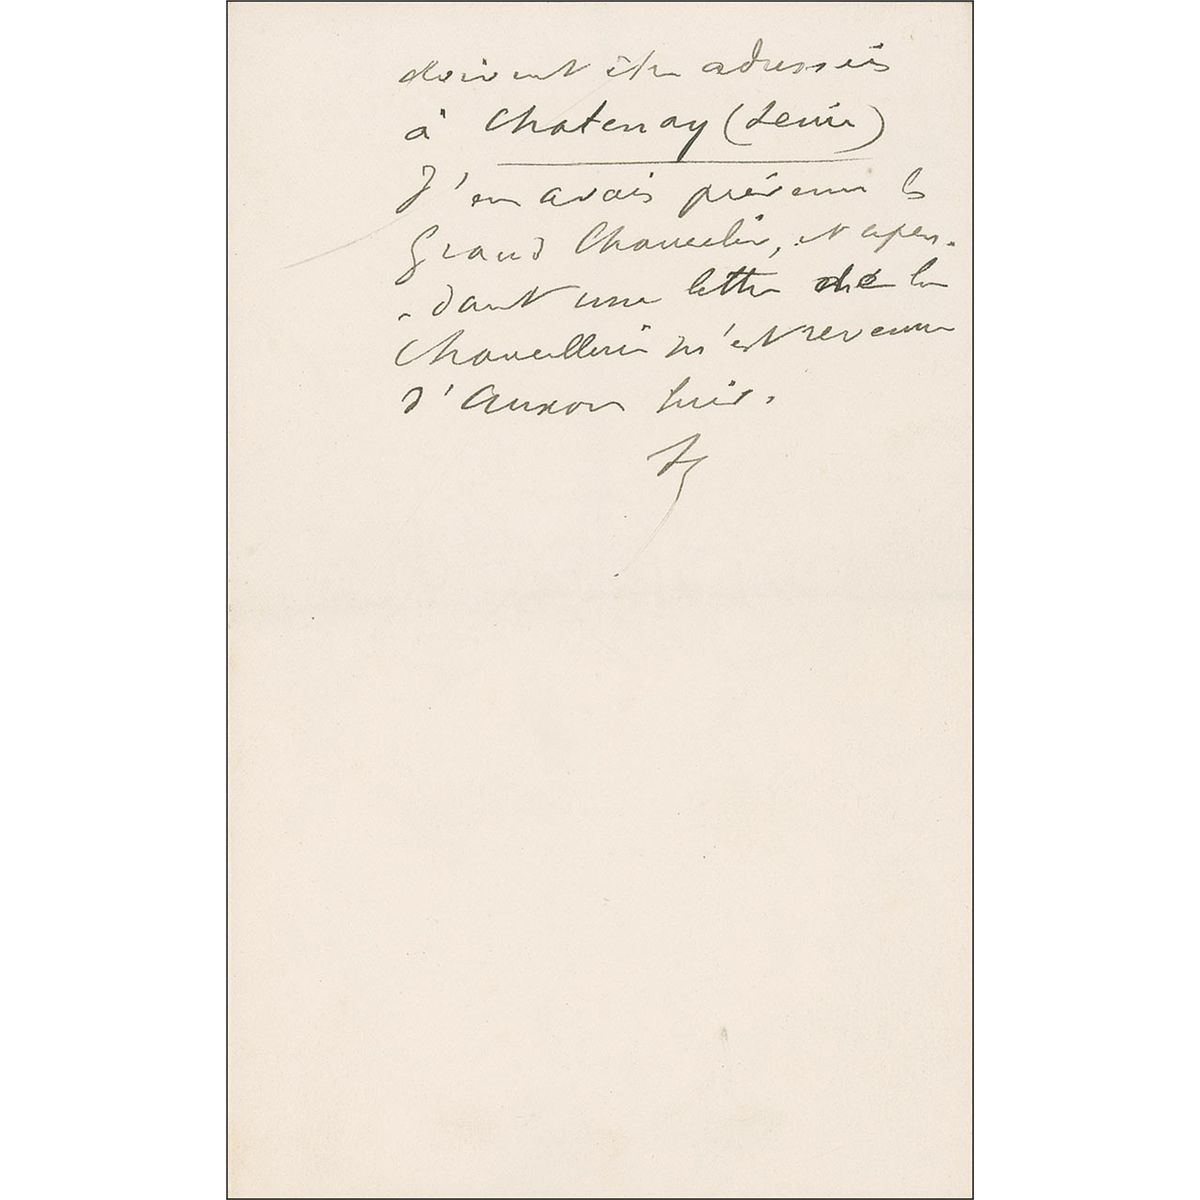 doivent être adressées
à Chatenay (Seine)
J'en avais prévenu le
Grand Chancelier, et cepen-
-dant une lettre de la
Chancellerie m'est revenue
d'Auxon hier.